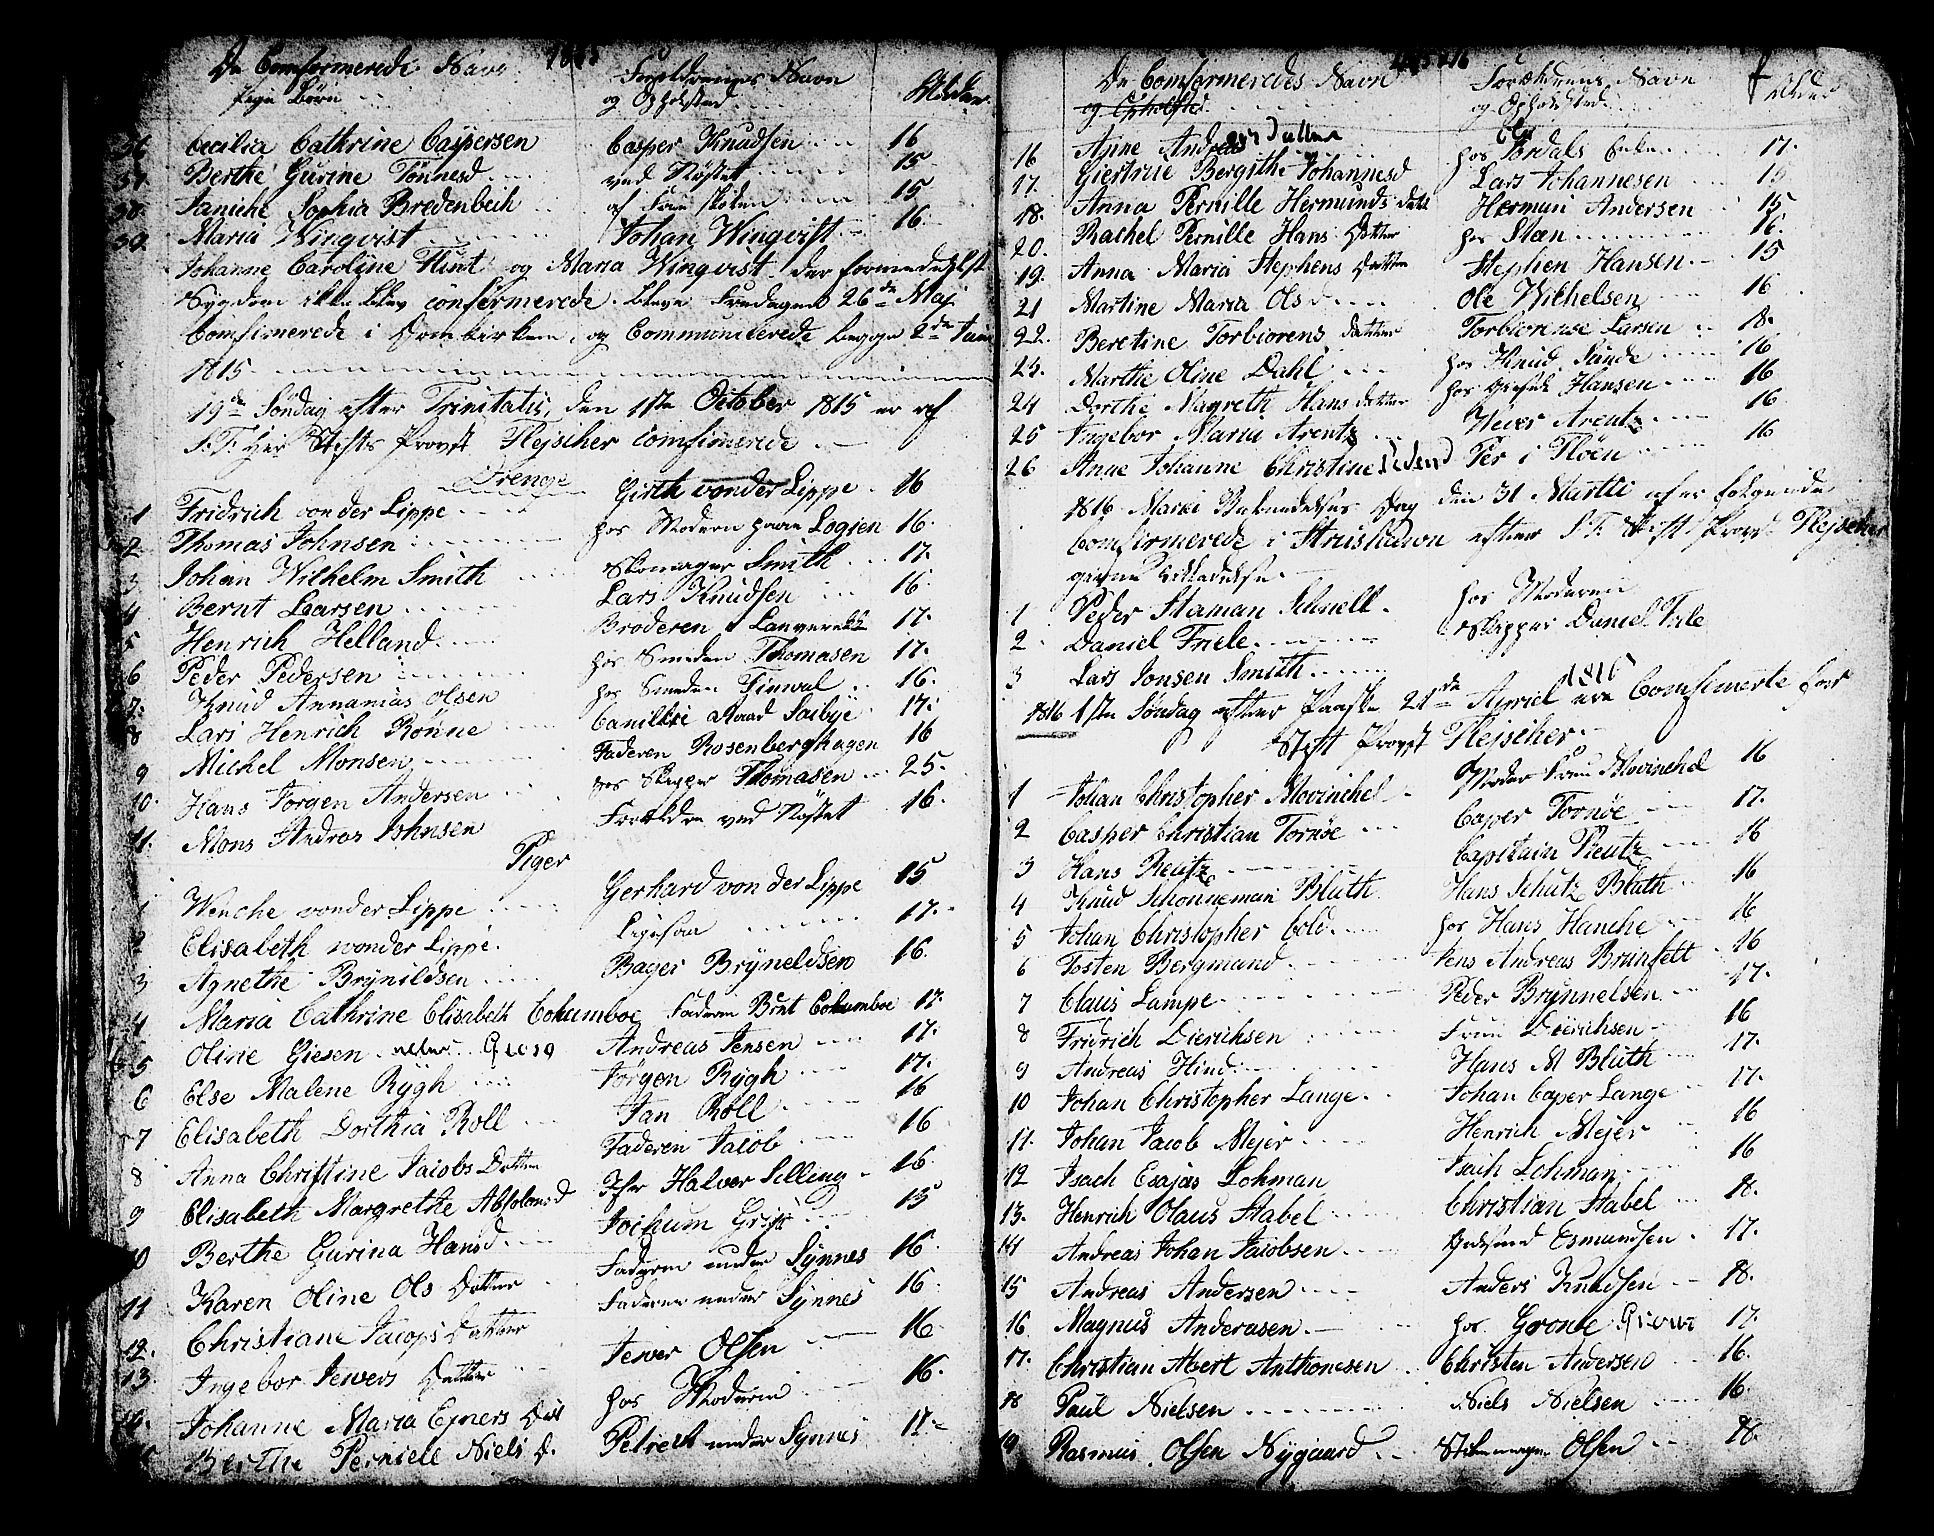 De Comfirmerede Navn 1815 Foreldrenes Navn Alder
Pige Børn og Opholsted
36 Cecilia Cathrine Caspersen Casper Knudsen 16
37. Berthe Gurine Tønnesd ved Nøstet 15
38. Janiche Sophia Bredenbech af 15
39. Maria Winqvist Johan Winqvist 16
Johanne Caroline Flint og Maria Winqvist der formedelst
Sygdom ikke blev confermerede. bleve Fredagen 26de Maj
Comfimerede i Domkirken, og Communicerede begge 2de Junii
1815.
19de Søndag efter Trinitatis, den 1ste October 1815 er af
S. T. Her Stifts Provst Flejscher comfimerede
Drenge
1 Fridrich von der Lippe Girth von der Lippe 16
2 Thomas Johnsen hos Moderen paa Logien 16.
3 Johan Wilhelm Smith Skomager Smith 17.
4 Bernt Larsen Lars Knudsen 16
5 Henrich Helland Broderen i 17.
6 Peder Pedersen hos Smeden Thomasen 17.
7. Knud Annanias Olsen hos Smeden 16.
8 Lars Henrich Rønne Cancellie Raad Saibye 17.
9 Michel Monsen Faderen Rosenberghagen 16
10. Hans Jørgen Andersen hos Skipper Thomasen 25.
11. Mons Andreas Johnsen Foreldre ved Nøstet 16.
Piger
1 Wenche von der Lippe Gerhard von der Lippe 15
2 Elisabeth vonder Lippe. Ligesaa 17.
3 Agnethe Brynildsen Bager Bryneldsen 16.
4 Maria Cathrine Elisabeth Columboe Faderen Bent Columboe 17.
5 Oline Giesen eller Andreas Jensen 17.
6 Else Malene Rÿgh Jørgen Rÿgh 17.
7 Elisabeth Dorthia Roll Jan Roll 16
8 Anna Christine Jacobs Datter Faderen Jacob 16
9 Elisabeth Margrethe Absolonsd Halvor Selling 16.
10 Berthe Gurina Hansd Jochum 15
11 Karen Oline Ols Datter Faderen under Synnes 16
12. Christiane Jacops Datter Faderen under Synnes 16
13. Ingebor Jewers Datter Jewer Olsen 16.
14. Johanne Maria Ejners Dat hos Moderen 16.
15 Berthe Perniele Niels D. under Synnes 17.
De Comfermeredes Navn 1815 Forældrenes Navn Alder
og Opholsted og Opholdsted
16 Anne Andreas Datter hos Jordals Enke 17.
17. Giertrue Bergithe Johannesd Lars Johannesen
18. Anna Pernille Hermunds datt Hermun Andersen 15
20. Rachel Pernille Hans Datter hos Steen 16.
19. Anna Maria Stephens Datter Stephen Hansen 15
21 Martine Maria Olsd Ole Wilhelsen 16
22. Beretine Torbiorens datter Torbiørnse Larsen 18.
23. Marthe Oline Dahl hos Knud Sunde 16
24 Dorthe Magreth Hans datter hos Hansen 16
25 Ingebor Maria Arentz Arentz 16
26 Anne Johanne Christine Pedersd Per i Fløen 16
1816 Mariæ Bebudelses Dag den 31 Martii er følgende
Comfirmerede i efter S. T. Stift Provst Flejscher
givne tilladelse.
1 Peder Staman Schnell. hos Moderen
2 Daniel Friele. Skipper Daniel Friele
3 Lars Jonsen Smith
1816 1ste Søndag efter Paaske 21de Apriel 1816 ere Comfimerte for
Stift Provst Flejscher.
1 Johan Christopher Movinchel Moder Frue Movinchel 16
2 Casper Christian Tornøe Caper Tornøe 17.
3 Hans Reutz Capitain Reutz 16
4 Knud Schonneman Bluth Hans Schutz Bluth 16
5 Johan Christopher Cold hos Hans Hanche 16
6 Tosten Bergmand Jens Andreas Brunfelt 16
7 Claus Lampe Peder Brunnelsen 17.
8 Fridrich Dierichsen Frue Dierichsen 16
9 Andreas Hind Hans M Bluth 17.
10 Johan Christopher Lange Johan Caper Lange 17.
11. Johan Jacob Mejer Henrich Mejer 16
12 Isach Esajas Lohman Isach Lohman 16
13. Henrich Olaus Stabel Christian Stabel 18.
14 Andreas Johan Jacobsen Esmundsen 17.
15 Andreas Andersen Anders Knudsen 18.
16 Magnus Anderasen hos Gronie 17.
17. Christian Abert Anthonesen Christen Andersen 16.
18 Paul Nielsen Niels Nielsen 16.
19 Rasmus Olsen Nygaard Olsen 18.